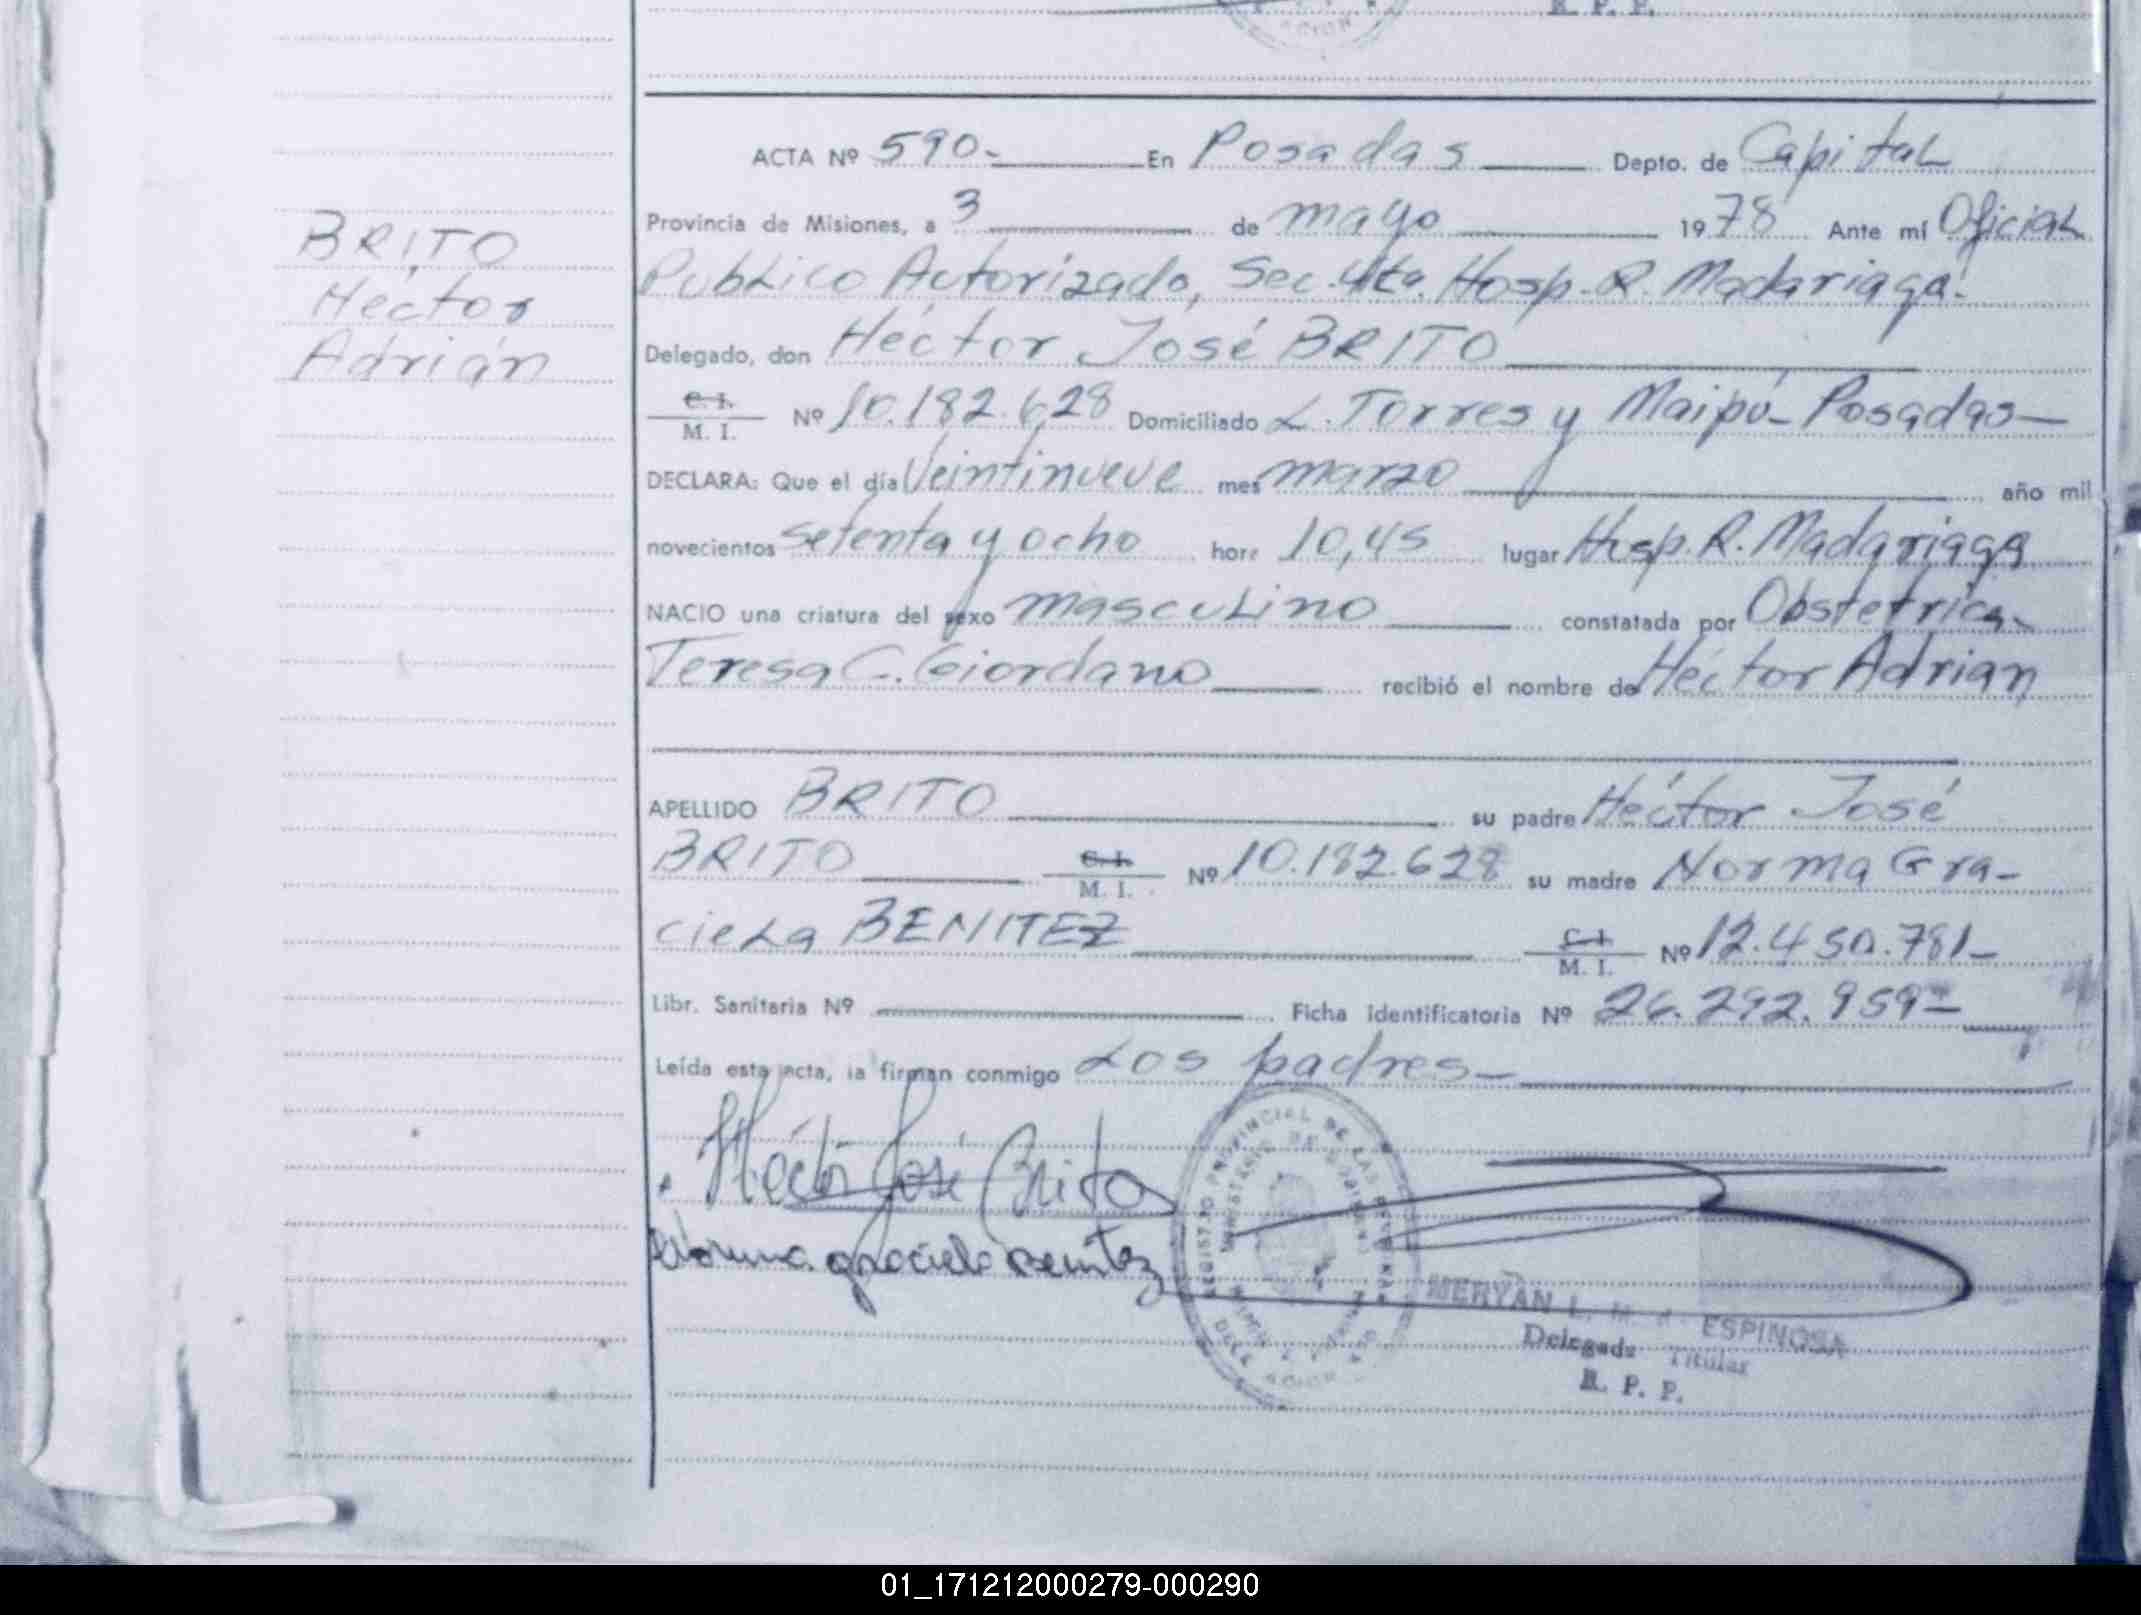 ACION
R. P. P.
ACTA Nº 590.- En Posadas Depto. de Capital
Provincia de Misiones, a 3 de mayo 1978 Ante mí Oficial
Publico Autorizado, Sec. 4ta. Hosp. R. Madariaga.
Delegado, don Héctor José BRITO
C. I.
M. I. Nº 10.182.628 Domiciliado L. Torres y Maipú - Posadas—
DECLARA: Que el día Veintinueve mes marzo año mil
novecientos setenta y ocho hora 10,45 lugar Hosp. R. Madariaga
NACIO una criatura del sexo masculino constatada por Obstetrica
Teresa C. Giordano recibió el nombre de Héctor Adrian
BRITO
Héctor
Adrián
APELLIDO BRITO su padre Héctor José
BRITO C. I. M. I. Nº 10.182.628 su madre Norma Gra-
ciela BENITEZ C. I. M. I. Nº 12.450.781-
Libr. Sanitaria Nº Ficha identificatoria Nº 26.292.959-
Leída esta acta, la firman conmigo Los padres-
Héctor José Brito
Norma graciela Benitez
REGISTRO PROVINCIAL DE LAS PERSONAS
DELEGACION
MERYAN L. M. d ESPINOSA
Delegada Titular
R. P. P.
01_171212000279-000290